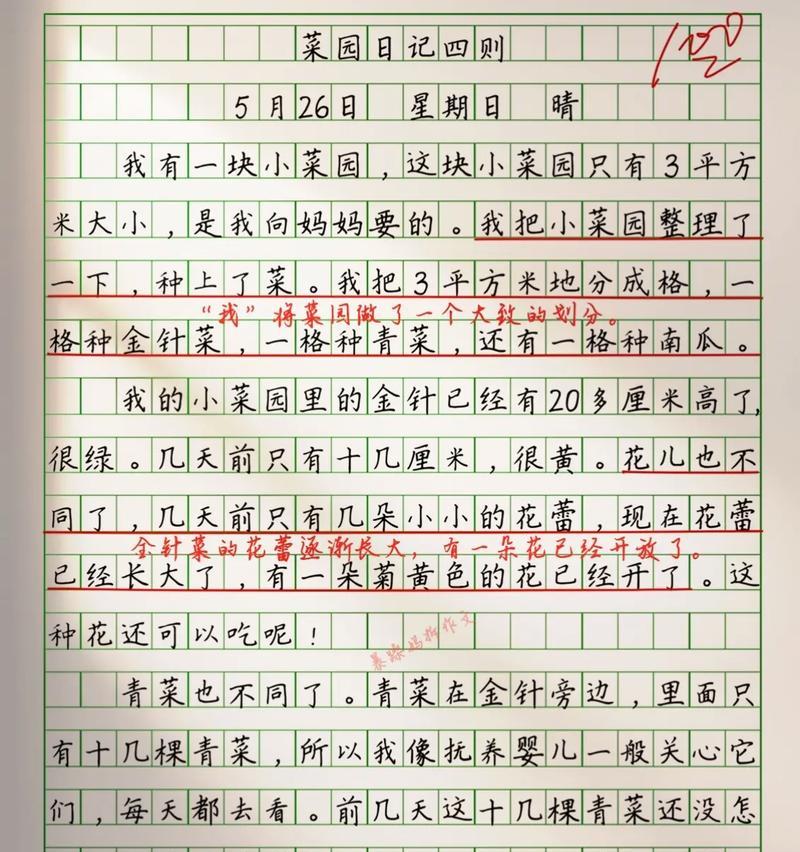 菜园日记四则
100
5月26日 星期日 晴
我有一块小菜园，这块小菜园只有3平方
米大小，是我向妈妈要的。我把小菜园整理了
一下，种上了菜。我把3平方米地分成格，一
“我”将菜园做了一个大致的划分。
格种金针菜，一格种青菜，还有一格种南瓜。
我的小菜园里的金针已经有20多厘米高了，
很绿。几天前只有十几厘米，很黄。花儿也不
同了，几天前只有几朵小小的花蕾，现在花蕾
金针菜的花蕾逐渐长大，有一朵花已经开放了。
已经长大了，有一朵菊黄色的花已经开了。这
种花还可以吃呢！
暴躁妈拆作文
青菜也不同了。青菜在金针旁边，里面只
有十几棵青菜，所以我像抚养婴儿一般关心它
们，每天都去看。前几天这十几棵青菜还没怎